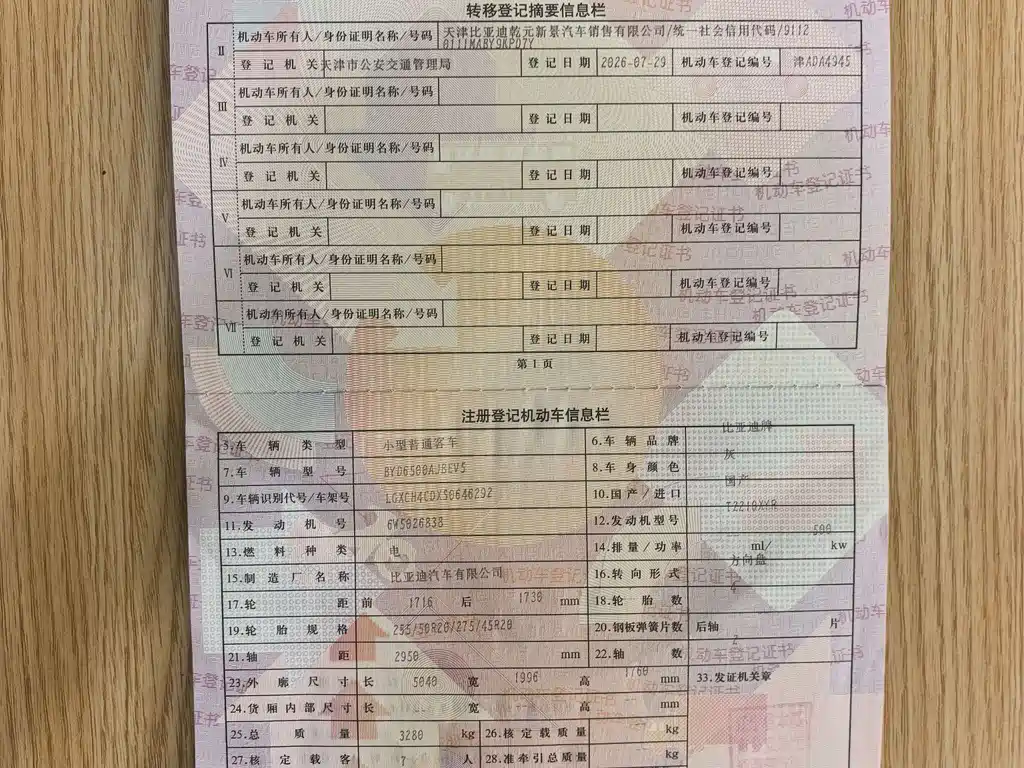 转移登记摘要信息栏
Ⅱ 机动车所有人/身份证明名称/号码 天津比亚迪乾元新景汽车销售有限公司/统一社会信用代码/9112
0111MABY9KPD7Y
登记机关 天津市公安交通管理局 登记日期 2026-07-29 机动车登记编号 津ADA4945
Ⅲ 机动车所有人/身份证明名称/号码
登记机关 登记日期 机动车登记编号
Ⅳ 机动车所有人/身份证明名称/号码
登记机关 登记日期 机动车登记编号
Ⅴ 机动车所有人/身份证明名称/号码
登记机关 登记日期 机动车登记编号
Ⅵ 机动车所有人/身份证明名称/号码
登记机关 登记日期 机动车登记编号
Ⅶ 机动车所有人/身份证明名称/号码
登记机关 登记日期 机动车登记编号
第1页
注册登记机动车信息栏
5.车辆类型 小型普通客车 6.车辆品牌 比亚迪牌
7.车辆型号 BYD6500AJBEV5 8.车身颜色 灰
9.车辆识别代号/车架号 LGXCH4CDXS0646292 10.国产/进口 国产
11.发动机号 6W5026838 12.发动机型号 TZ210XYR
13.燃料种类 电 14.排量/功率 ml/ 500 kw
15.制造厂名称 比亚迪汽车有限公司 16.转向形式 方向盘
17.轮距 前 1716 后 1730 mm 18.轮胎数 4
19.轮胎规格 255/50R20/275/45R20 20.钢板弹簧片数 后轴 片
21.轴距 2950 mm 22.轴数 2
23.外廓尺寸 长 5040 宽 1996 高 1760 mm 33.发证机关章
24.货厢内部尺寸 长 宽 高 mm
25.总质量 3280 kg 26.核定载质量 kg
27.核定载客 7 人 28.准牵引总质量 kg